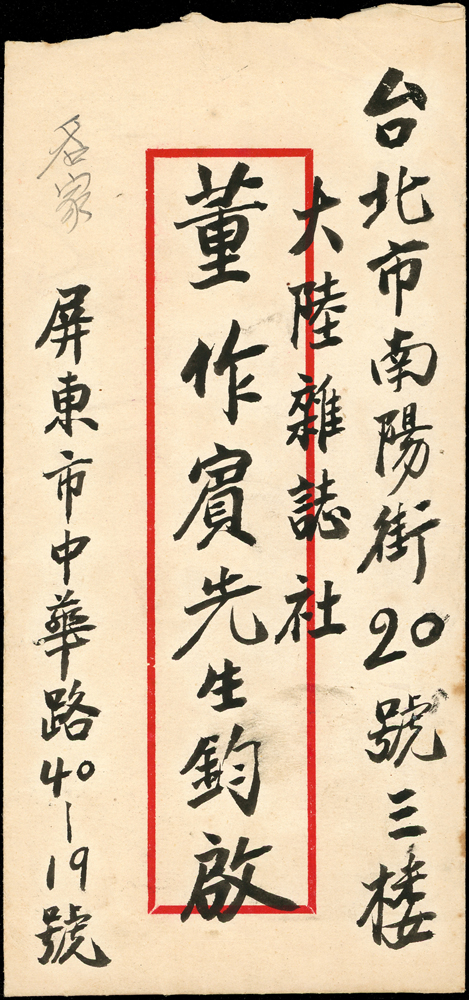 台北市南陽街20號三楼
大陸雜誌社
董作賓先生鈞啟
屏東市中華路40-19號
名家